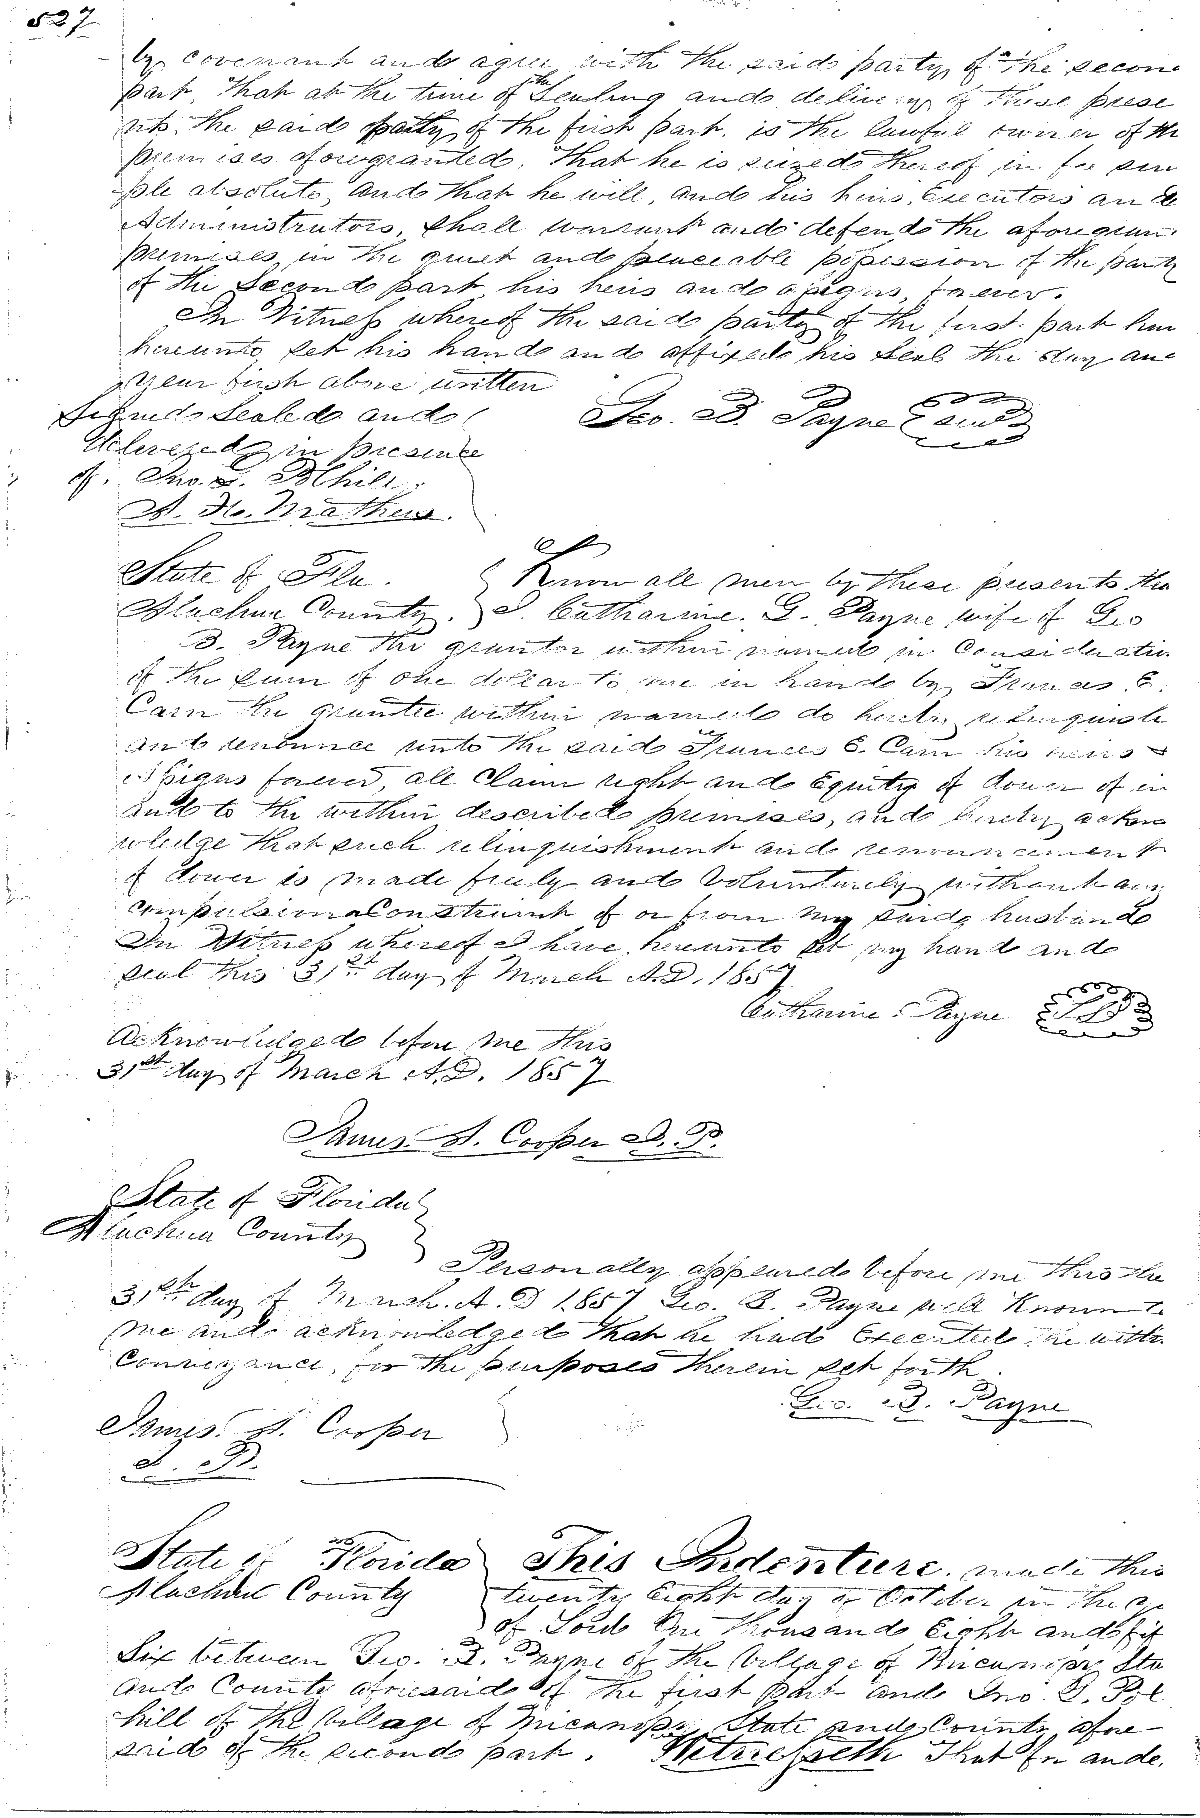 527
by covenant and agree with the said party of the secon
part, That at the time of the Sealing and delivery of these prese
nts, the said party of the first part, is the lawful owner of th
premises aforegranted, That he is seized thereof in fee sim
ple absolute, and that he will, and his heirs, Executors and
Administrators, shall warrant and defend the aforegran
premises, in the quiet and peaceable possession of the party
of the Second part, his heirs and assigns, forever.
In Witness whereof the said party of the first part hav
hereunto, set his hand and affixed his Seal the day and
year first above written
Signed Sealed and
Geo. B. Payne seal
Delivered in presence
of. Jno. G. Polhill.
A. H. Mathers.
State of Fla.
Know all men by these presents tha
Alachua County. I. Catharine. G. Payne wife of Geo
B. Payne the grantor within named in Consideratio
of the sum of one dollar to me in hand by Frances E.
Carn the grantee within named do hereby relinquish
and renounce unto the said Frances E. Carn his heirs &
assigns forever, all Claim right and Equity of dower of in
and to the within described premises, and hereby ackno
wledge that such relinquishment and renouncement
of dower is made freely and Voluntarily without any
compulsion or Constraint of or from my said, husband
In Witness whereof I have hereunto set my hand and
seal this 31st day of March A.D. 1857
Catharine Payne
Acknowledged before me this
31st day of March A.D. 1857
James A. Cooper J. P.
State of Florida
Alachua County
Personally appeared before me this the
31st day of March. A. D 1857 Geo. B. Payne well Known to
me and acknowledged that he had Executed the within
Conveyance, for the purposes therein set forth.
Geo. B. Payne
James. A. Cooper
J. P.
State of Florida This Indenture. made this
Alachua County twenty Eight day of October in the
of Lord One thousand Eight and fif
Six between Geo. B. Payne of the Village of Micanopy Sta
and County aforesaid of the first part and Jno. G. Pol
hill of the Village of Micanopy, State and County afore-
said of the second part. Witnesseth That for and